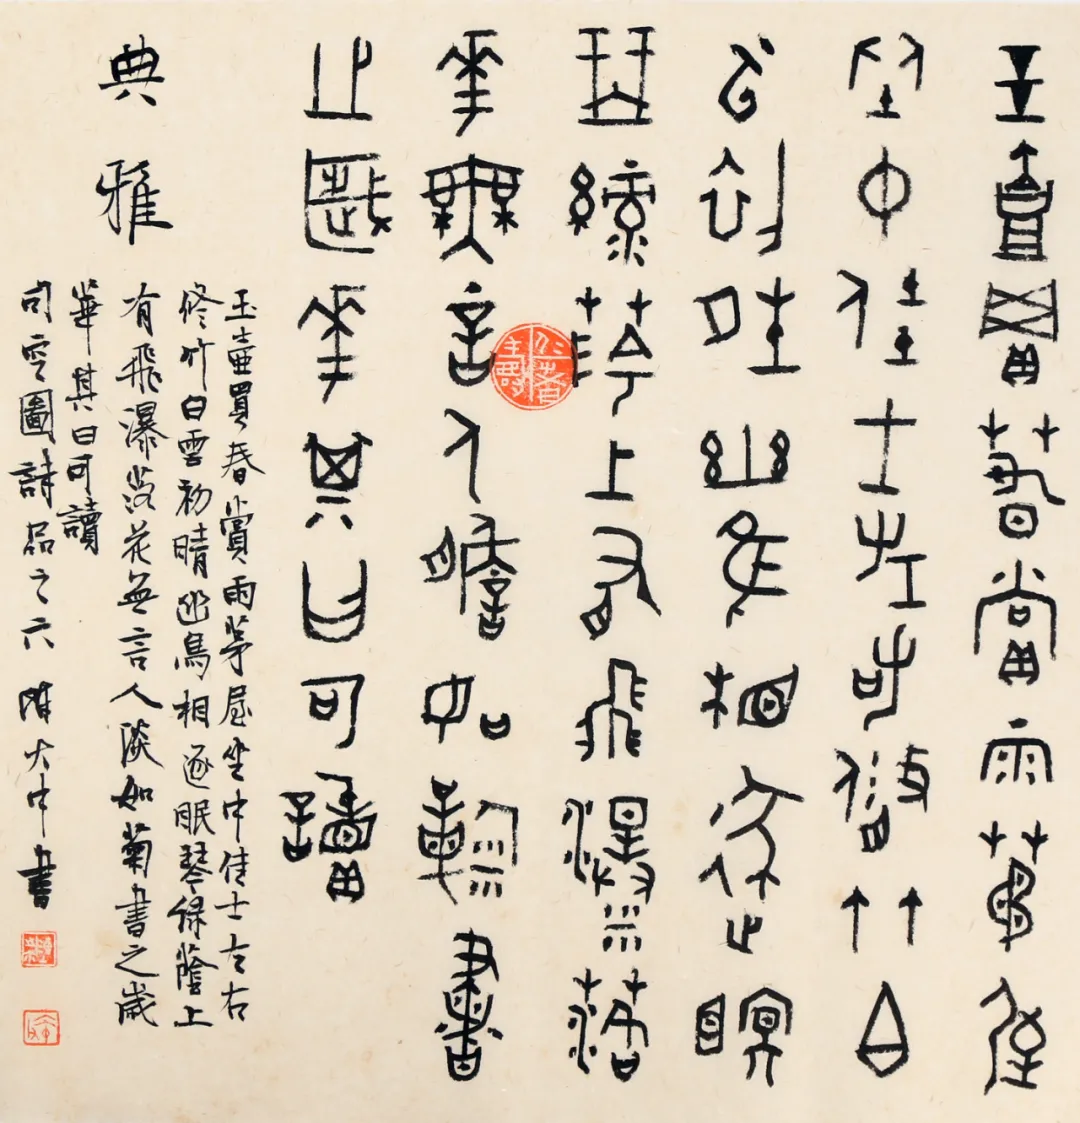 玉壺買春賞雨茅屋
坐中佳士左右修竹白
雲初晴幽鳥相逐眠
琴綠蔭上有飛瀑落
花無言人澹如菊書
之歲華其曰可讀
典雅
玉壺買春賞雨茅屋坐中佳士左右
修竹白雲初晴幽鳥相逐眠琴綠蔭上
有飛瀑落花無言人淡如菊書之歲
華其曰可讀
司空圖詩品之六 陳大中書